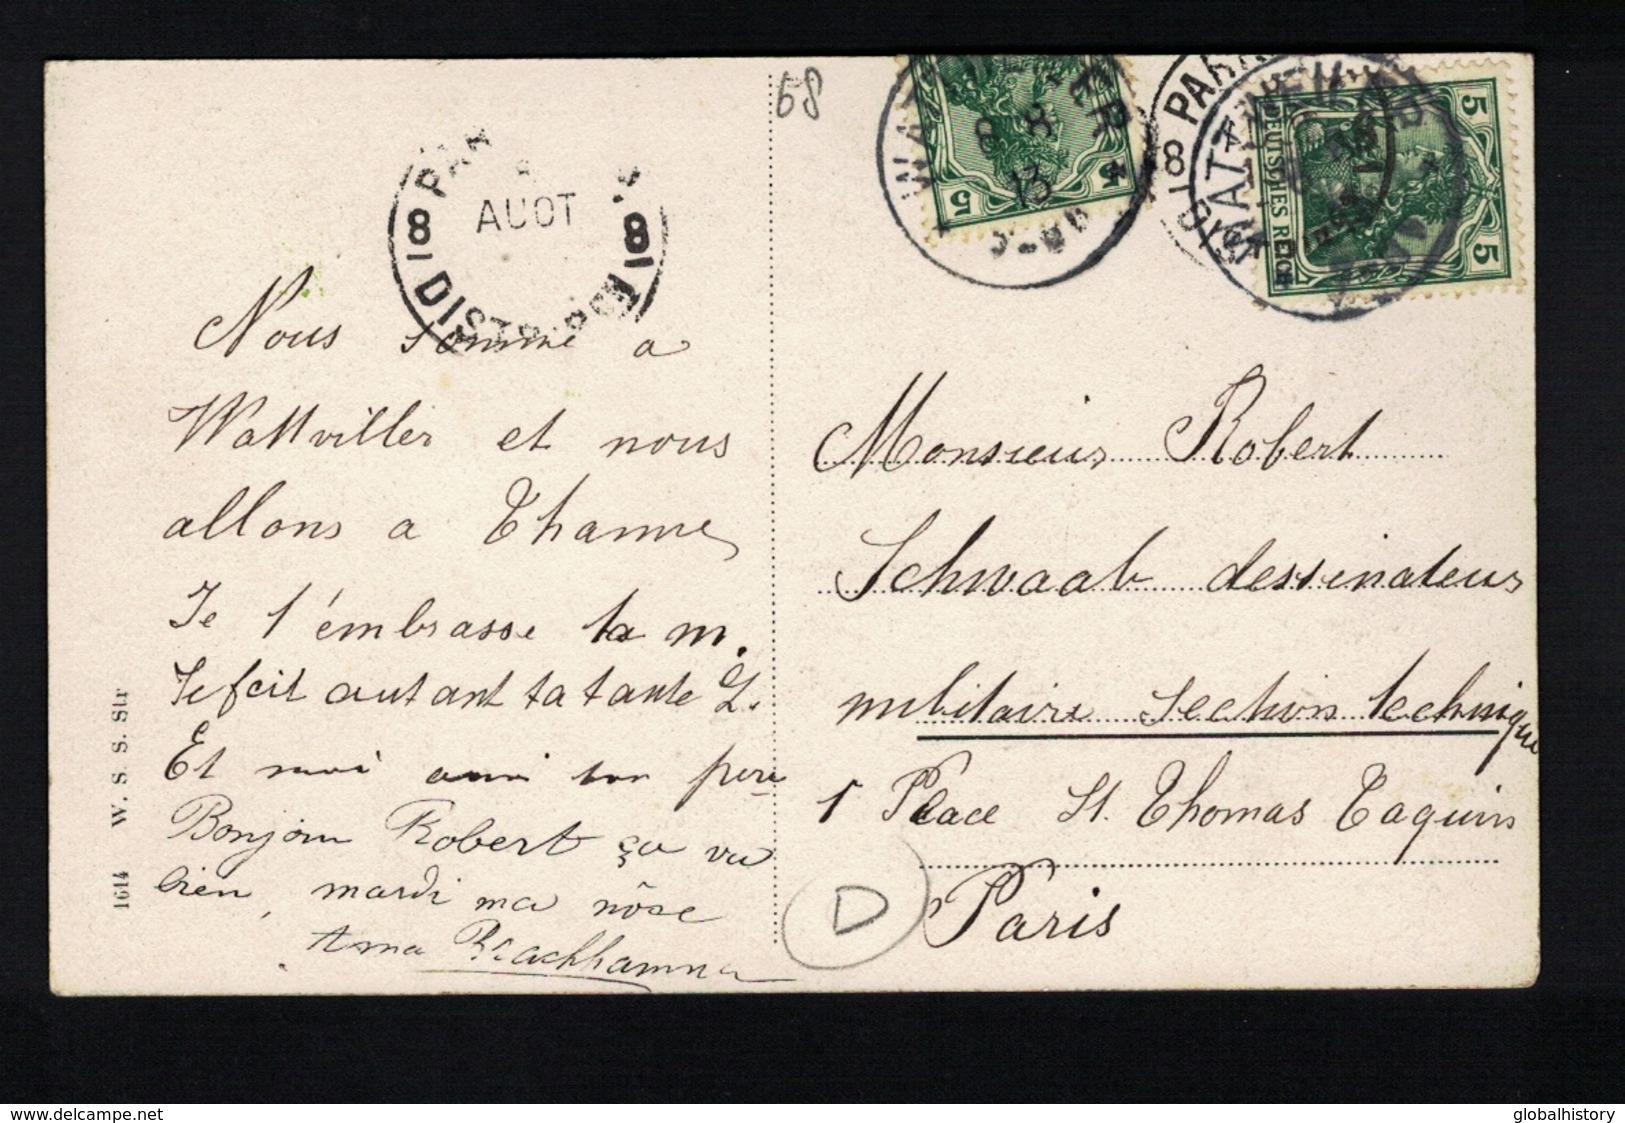 68
PAR
AOUT
8 DISTR
8
WATTWEILER
8 8
13
5
5
PARIS
8
DISTR
WATTWEILER
DEUTSCHES REICH
5
5
Nous somme a
Wattviller et nous
allons a Thanne
Je t'émbrasse ta m.
Je fait autant ta tante L.
Et moi ton pere
Bonjour Robert ça va
bien, mardi ma nôse
Monsieur Robert
Schwaab dessinateur
militaire Section technique
1 Place St. Thomas Taquin
Paris
D
1614 W. S. S. Str
www.delcampe.net
globalhistory